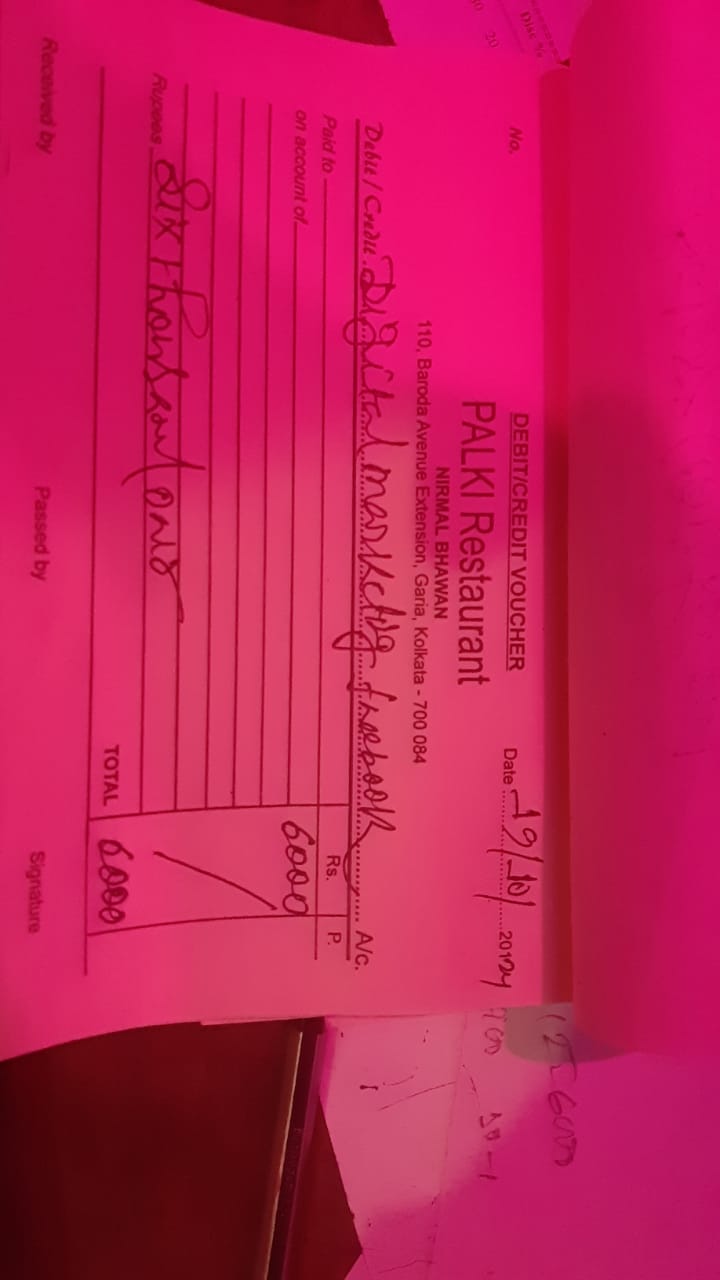 DEBIT/CREDIT VOUCHER
No.
Date 19/10/ 20124
PALKI Restaurant
NIRMAL BHAWAN
110, Baroda Avenue Extension, Garia, Kolkata - 700 084
Debit / Credit. Digital marketing facebook A/c.
Paid to Rs. P.
on account of 6000
Rupees Six thousand only
TOTAL 6000
Received by Passed by Signature
Disc %
20